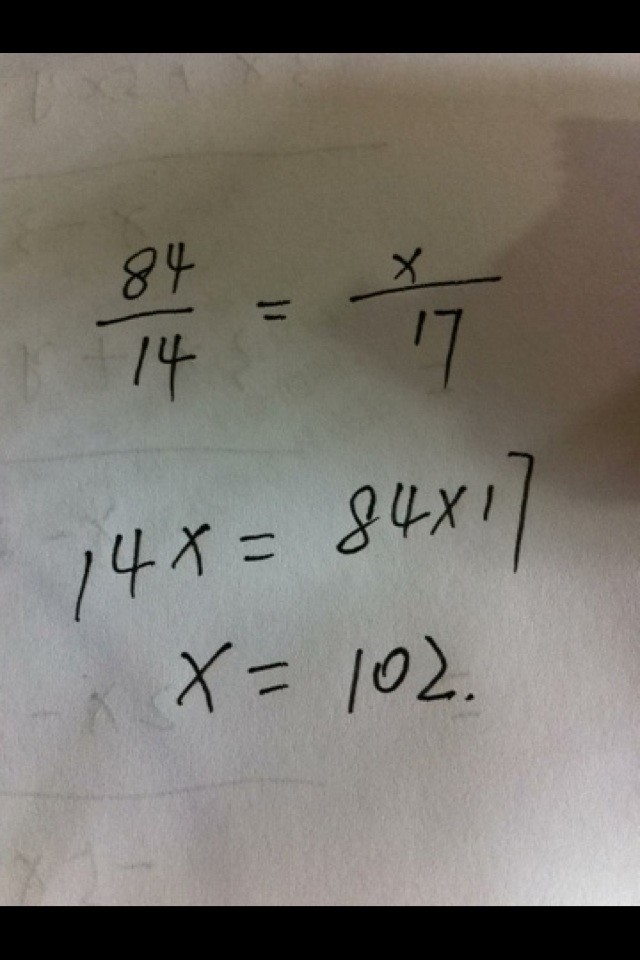 84/14 = x/17
14x = 84x17
x = 102.